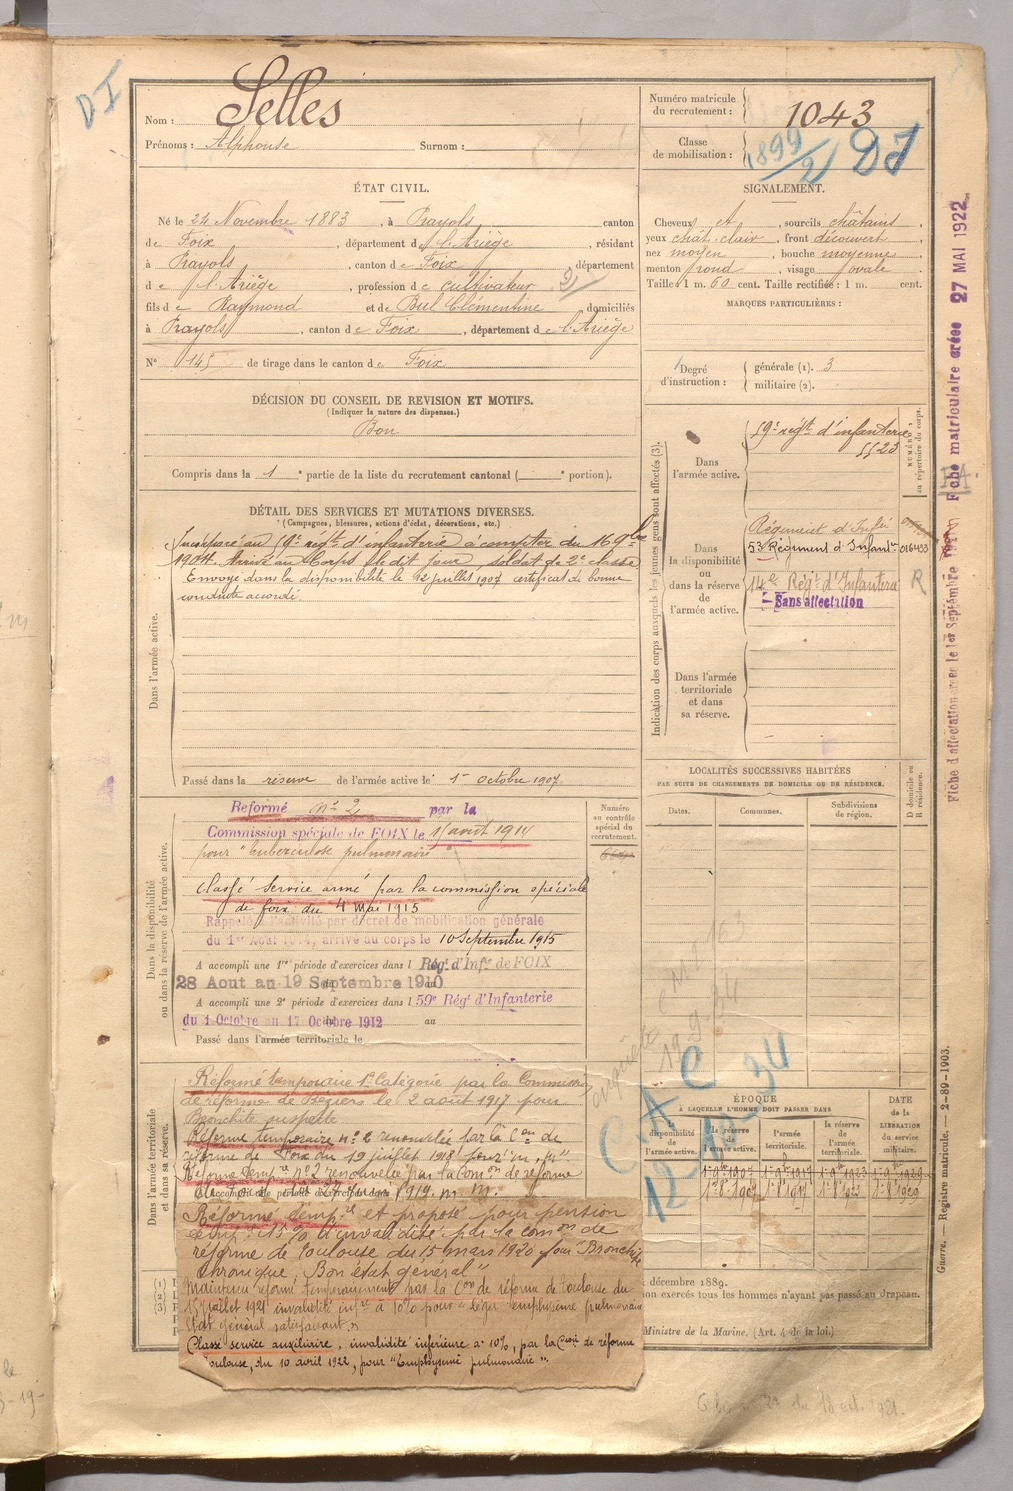 DI
Nom : Selles
Prénoms : Alphonse Surnom :
Numéro matricule du recrutement : 1043
Classe de mobilisation : 1899/2 DI
ÉTAT CIVIL.
Né le 24 Novembre 1883, à Prayols canton
de Foix, département de l'Ariège, résidant
à Prayols, canton de Foix, département
de l'Ariège, profession de cultivateur 2
fils de Raymond et de Buel Clémentine, domiciliés
à Prayols, canton de Foix, département de l'Ariège
N° 145 de tirage dans le canton de Foix
SIGNALEMENT.
Cheveux et, sourcils châtains,
yeux chât. clair, front découvert,
nez moyen, bouche moyenne,
menton rond, visage ovale.
Taille : 1 m. 60 cent. Taille rectifiée : 1 m. cent.
MARQUES PARTICULIÈRES :
Degré d'instruction : générale (1). 3
militaire (2).
DÉCISION DU CONSEIL DE REVISION ET MOTIFS.
(Indiquer la nature des dispenses.)
Bon
Compris dans la 1e partie de la liste du recrutement cantonal ( e portion).
DÉTAIL DES SERVICES ET MUTATIONS DIVERSES.
(Campagnes, blessures, actions d'éclat, décorations, etc.)
Dans l'armée active.
Incorporé au 59e régt d'infanterie à compter du 16 9bre
1904. Arrivé au Corps le dit jour, soldat de 2e classe
Envoyé dans la disponibilité le 12 juillet 1907 certificat de bonne
conduite accordé.
Passé dans la réserve de l'armée active le 1er octobre 1907.
Indication des corps auxquels les jeunes gens sont affectés (3).
NUMÉRO au répertoire du corps.
Dans l'armée active.
59e régt d'infanterie
5523
Dans la disponibilité ou dans la réserve de l'armée active.
Régiment d'Infie
53 Régiment d'Infantie 016433
14e Régt d'Infanterie R
Sans affectation
Dans l'armée territoriale et dans sa réserve.
Fiche d'affectation créée le 1er Septembre
Fiche matriculaire créée 27 MAI 1922
LOCALITÉS SUCCESSIVES HABITÉES
PAR SUITE DE CHANGEMENTS DE DOMICILE OU DE RÉSIDENCE.
Dates. Communes. Subdivisions de région. D domicile ou R résidence.
Dans la disponibilité ou dans la réserve de l'armée active.
Numéro au contrôle spécial du recrutement.
Réformé n° 2 par la
Commission spéciale de FOIX le 11 août 1914
pour "tuberculose pulmonaire"
Classé service armé par la commission spéciale
de foix du 4 mai 1915
Rappelé à l'activité par décret de mobilisation générale
du 1er Août 1914, arrivé au corps le 10 Septembre 1915
A accompli une 1re période d'exercices dans l Régt d'Infie de FOIX
28 Aout au 19 Septembre 1910
A accompli une 2e période d'exercices dans l 59e Régt d'Infanterie
du 1 Octobre au 17 Octobre 1912 au
Passé dans l'armée territoriale le
Dans l'armée territoriale et dans sa réserve.
Réformé temporaire 1e Catégorie par la Commission
de réforme de Béziers le 2 août 1917 pour
Bronchite suspecte
Réforme temporaire n° 2 renouvelée par la Con de
réforme de Foix du 19 juillet 1918 pour
Réforme tempre n° 2 renouvelée par la comon de réforme
1919. m. m.
Réformé tempre et proposé pour pension
tempre 15 % d'invalidité par la comon de
réforme de Toulouse du 15 mars 1920 pour "Bronchite
chronique. Bon état général"
Maintenu réformé temporairement par la Con de réforme de Toulouse du
15 juillet 1921 invalidité infre à 10% pour "léger emphysème pulmonaire
état général satisfaisant."
Classé service auxiliaire, invalidité inférieure à 10%, par la Con de réforme
Toulouse, du 10 avril 1922, pour "Emphysème pulmonaire".
enquête
19-9-34
C.A.C
12 34
ÉPOQUE
À LAQUELLE L'HOMME DOIT PASSER DANS
la disponibilité de l'armée active. la réserve de l'armée active. l'armée territoriale. la réserve de l'armée territoriale.
DATE de la LIBÉRATION du service militaire.
1er 9bre 1907 1er 9bre 1917 1er 9bre 1923 1er 9bre 1929
1er 8bre 1907 1er 8bre 1917 1er 8bre 1923 1er 8bre 1929
(1)
(2)
(3)
décembre 1889.
exercés tous les hommes n'ayant pas passé au drapeau.
Ministre de la Marine. (Art. 4 de la loi.)
Guerre. — Registre matricule. — 2-89-1903.